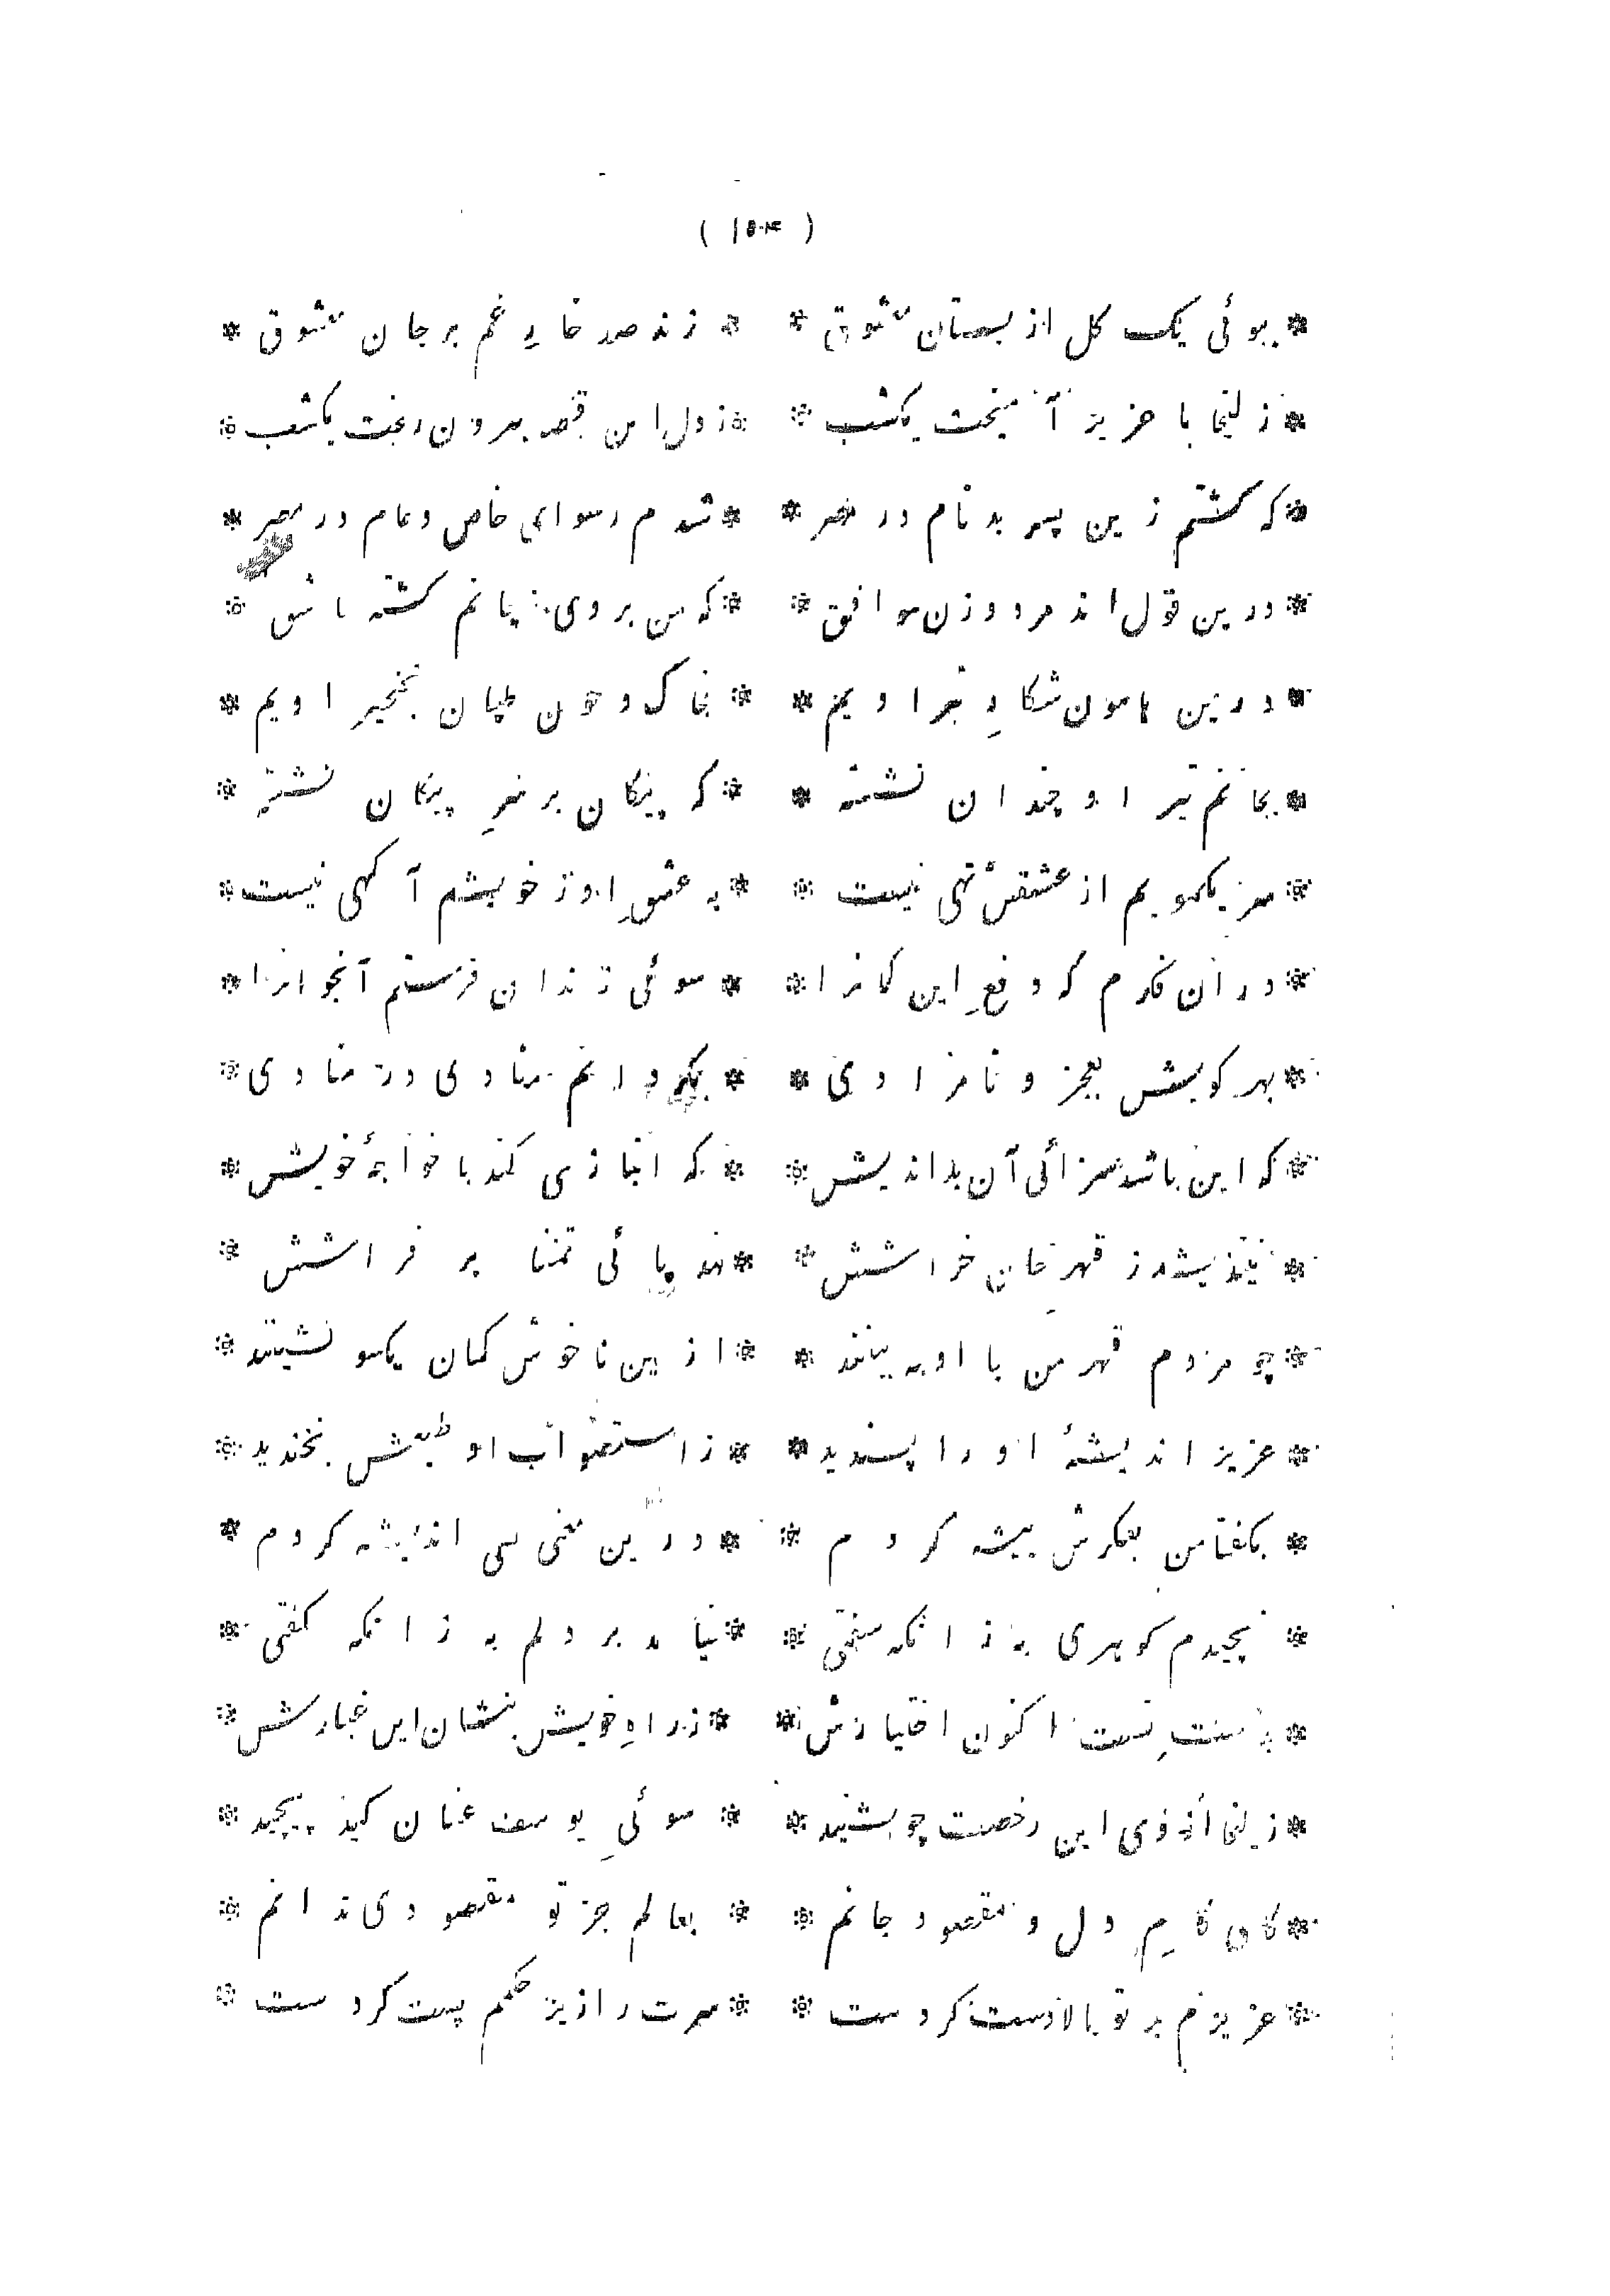 ( ۱۵۴ )
* ببوئی یک کل از بستان معشوق * * زند صد خارِ غم بر جان معشوق *
* زلیخا با عزیز آمیخت یکشب * * ز دل این قصه بیرون ریخت یکشب *
* که کشتم زین پسر بدنام در مصر * * شدم رسوای خاص و عام در مصر *
* درین قول اند مرد و زن موافق * * که من بر وی ز جانم کشته عاشق *
* درین هامون شکارِ تیر اویم * * بخاک و خون طپان نخچیر اویم *
* بجانم تیر او چندان نشسته * * که پیکان بر سرِ پیکان نشسته *
* سر یکمویم از عشقش تهی نیست * * به عشقِ او ز خویشم آکهی نیست *
* در آن فکرم که دفعِ این کمانرا * * سوئی زندان فرستم آنجوانرا *
* بهر کویش بعجز و نامرادی * * بکردانم منادی در منادی *
* که این باشد سزائی آن بداندیش * * که انبازی کند با خواجهٔ خویش *
* نیندیشد ز قهرِ جان خراشش * * نهد پائی تمنا بر فراشش *
* چو مردم قهر من با او به بینند * * ازین ناخوش کمان یکسو نشینند *
* عزیز اندیشهٔ او را پسندید * * ز استصواب او طبعش بخندید *
* بکفتا من بفکرش پیشه کردم * * درین معنی بسی اندیشه کردم *
* نچیدم کوهری به زانکه سفتی * * نیامد بر دلم به زانکه کفتی *
* بدستِ تست اکنون اختیارش * * ز راهِ خویش بنشان این غبارش *
* زلیخا از وی این رخصت چو بشنید * * سوئیِ یوسف عنان کید پیچید *
* کای کامِ دل و مقصود جانم * * بعالم جز تو مقصودی ندانم *
* عزیزم بر تو بالادست کردست * * سرت را زیر حکمم پست کردست *